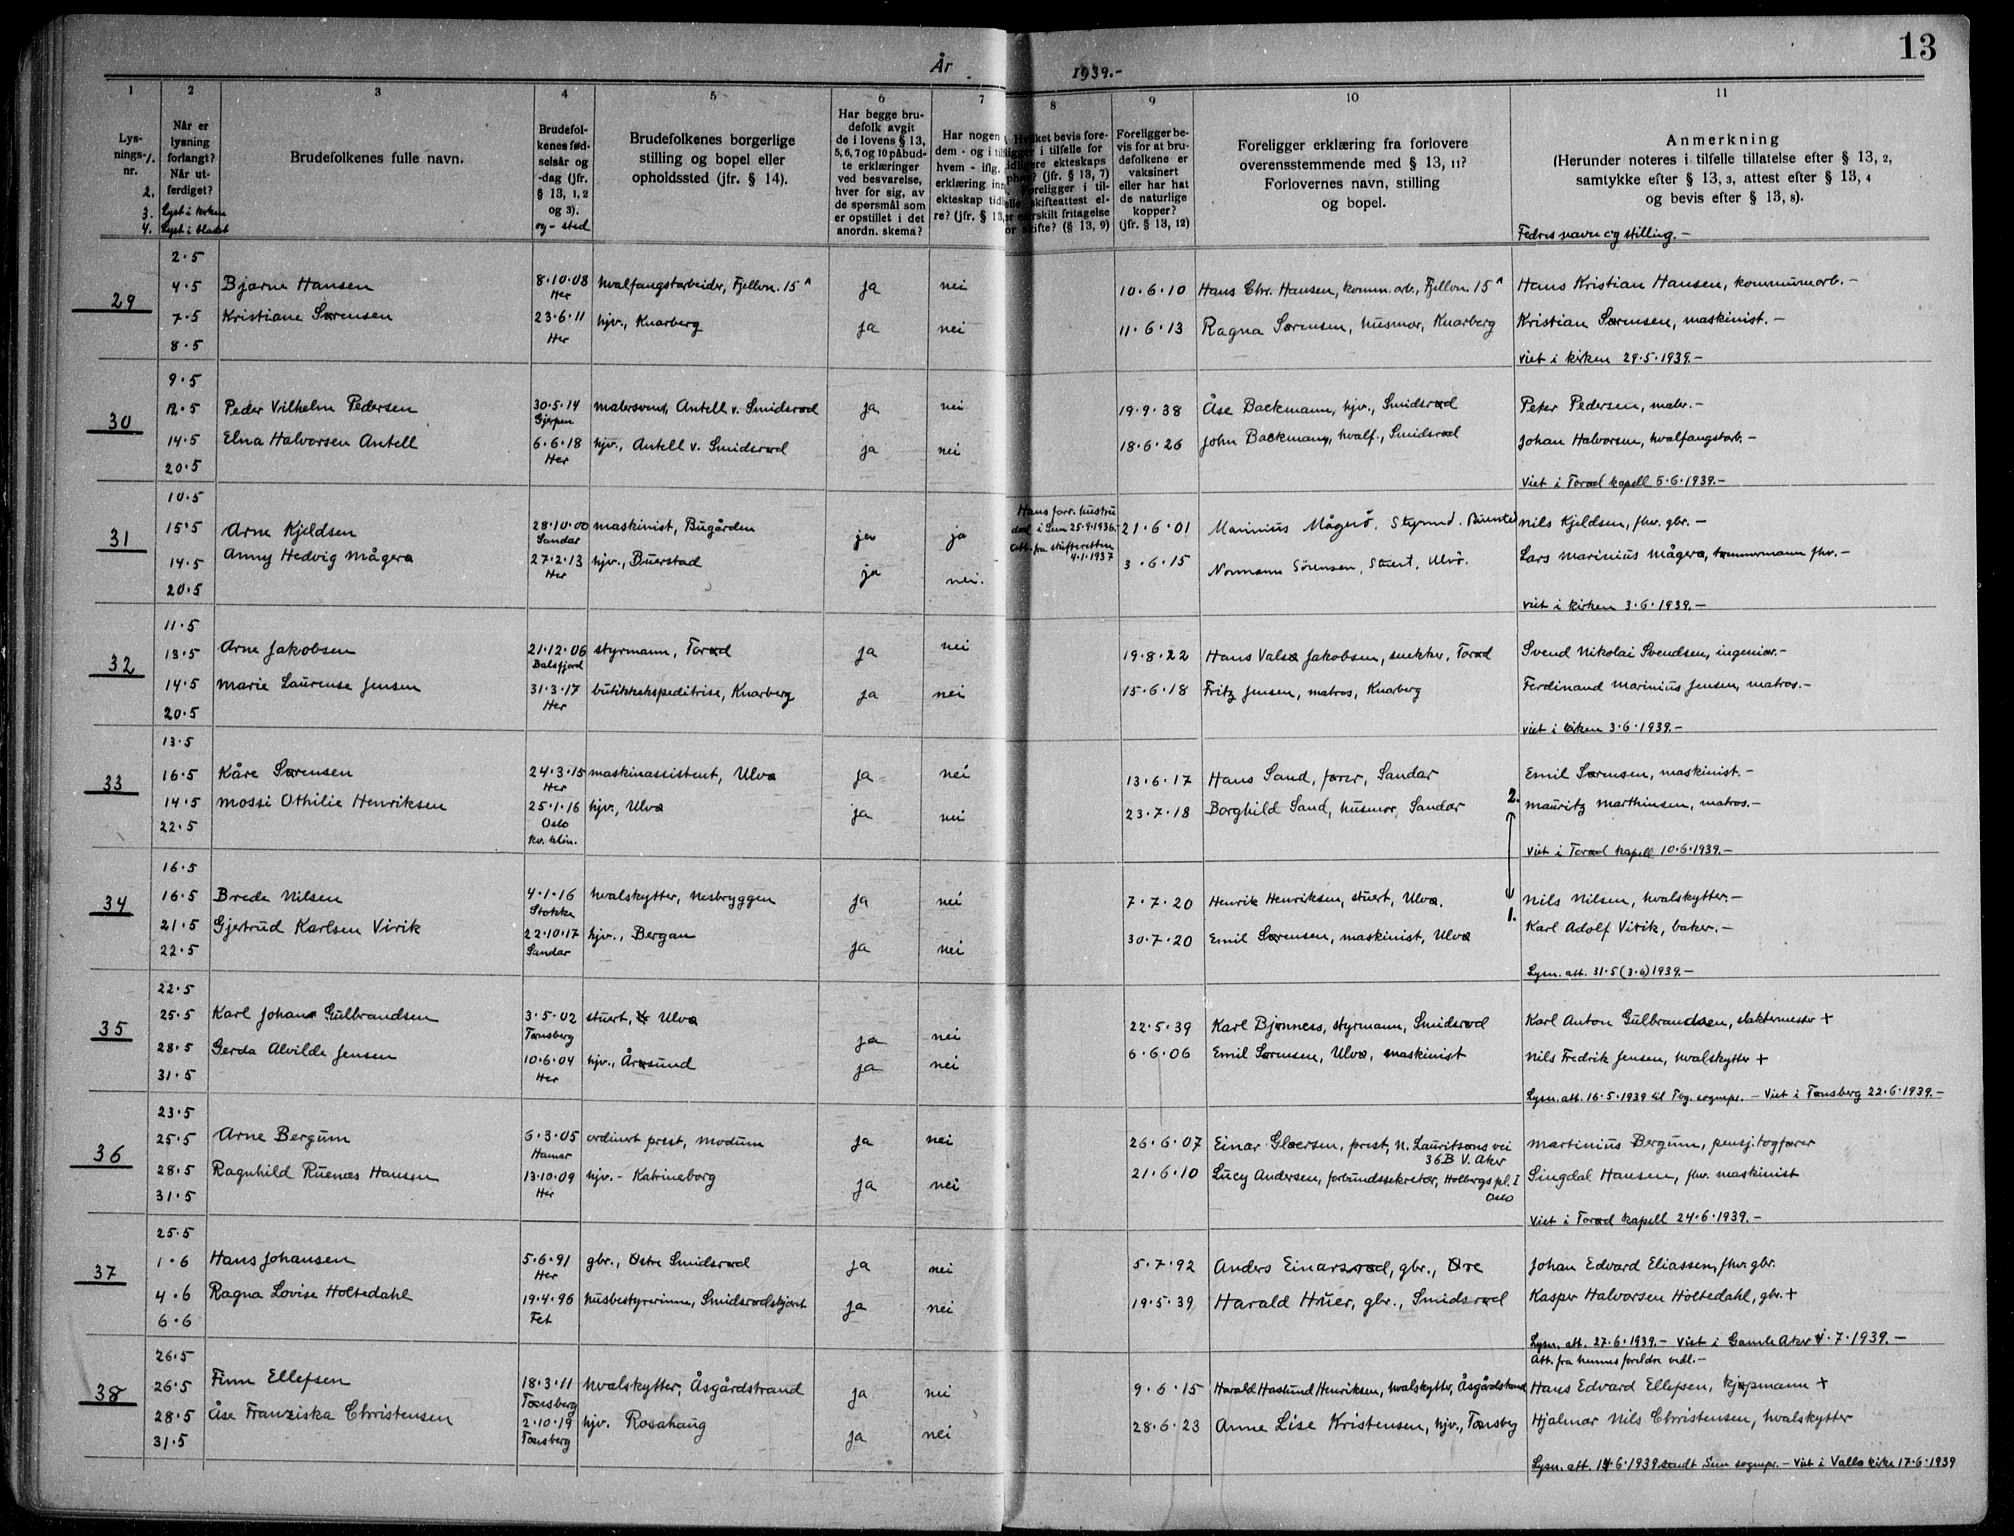 13
År 1939.-
1 2 3 4 5 6 7 8 9 10 11
Lysnings-nr. 1. 2. 3. 4.
Når er lysning forlangt? Når utferdiget? Lyst i kirken Lyst i bladet
Brudefolkenes fulle navn.
Brudefolkenes fødselsår og -dag (jfr. § 13, 1, 2 og 3). og - sted
Brudefolkenes borgerlige stilling og bopel eller opholdssted (jfr. § 14).
Har begge brudefolk avgit de i lovens § 13, 5, 6, 7 og 10 påbudte erklæringer ved besvarelse, hver for sig, av de spørsmål som er opstillet i det anordn. skema?
Har nogen
dem - og i
hvem - iflg.
erklæring
ekteskap
re? (jfr. § 13,
bevis fore-
i tilfelle for
ekteskaps
(jfr. § 13, 7)
Foreligger i til-
skifteattest el-
særskilt fritagelse
skifte? (§ 13, 9)
Foreligger bevis for at brudefolkene er vaksinert eller har hat de naturlige kopper? (jfr. § 13, 12)
Foreligger erklæring fra forlovere overensstemmende med § 13, 11? Forlovernes navn, stilling og bopel.
Anmerkning (Herunder noteres i tilfelle tillatelse efter § 13, 2, samtykke efter § 13, 3, attest efter § 13, 4 og bevis efter § 13, 8).
Fedres navn og stilling.-
29
2.5
4.5 Bjarne Hansen 8.10.08 Her hvalfangstarbeider, Fjellvn. 15 A ja nei 10.6.10 Hans Chr. Hansen, komm.arb., Fjellvn. 15 A Hans Kristian Hansen, kommunearb.-
7.5 Kristiane Sørensen 23.6.11 Her hjv., Knarberg ja nei 11.6.13 Ragna Sørensen, husmor, Knarberg Kristian Sørensen, maskinist.-
8.5 Viet i kirken 29.5.1939.-
30
9.5
12.5 Peder Vilhelm Pedersen 30.5.14 Gjerpen malersvend, Antell v. Smidsrød ja nei 19.9.38 Åse Backmann, hjv., Smidsrød Peter Pedersen, maler.-
14.5 Elna Halvorsen Antell 6.6.18 Her hjv., Antell v. Smidsrød ja nei 18.6.26 John Backmann, hvalf., Smidsrød Johan Halvorsen, hvalfangstarb.-
20.5 Viet i Torød kapell 5.6.1939.-
31
10.5
15.5 Arne Kjeldsen 28.10.00 Sandar maskinist, Bugården ja ja Hans forr. hustru død i Sem 25.9.1936.- Att. fra skifteretten 4.1.1937 21.6.01 Marinius Mågerø. Styrmd. Nils Kjeldsen, fhv. gbr.-
14.5 Anny Hedvig Mågerø 27.2.13 Her hjv., Buerstad ja nei. 3.6.15 Normann Sörensen, Stuert, Ulvö. Lars Marinius Mågerø, tømmermann fhv.-
20.5 Viet i kirken 3.6.1939.-
32
11.5
13.5 Arne Jakobsen 21.12.06 Balsfjord styrmann, Torød ja nei 19.8.22 Hans Valsø Jakobsen, snekker, Torød Svend Nikolai Svendsen, ingeniør.-
14.5 Marie Laurense Jensen 31.3.17 Her butikkekspeditrise, Knarberg ja nei 15.6.18 Fritz Jensen, matros, Knarberg Ferdinand Marinius Jensen, matros.-
20.5 Viet i kirken 3.6.1939.-
33
13.5
16.5 Kåre Sørensen 24.3.15 Her maskinassistent, Ulvø ja nei 13.6.17 Hans Sand, fører, Sandar Emil Sørensen, maskinist.-
14.5 Mossi Othilie Henriksen 25.1.16 Oslo kv. klin. hjv., Ulvø ja nei 23.7.18 Borghild Sand, husmor, Sandar 2. Mauritz Marthinsen, matros.-
22.5 Viet i Torød kapell 10.6.1939.-
34
16.5
16.5 Brede Nilsen 4.1.16 Stokke hvalskytter, Nesbryggen ja nei 7.7.20 Henrik Henriksen, stuert, Ulvø. Nils Nilsen, hvalskytter.-
21.5 Gjertrud Karlsen Virik 22.10.17 Sandar hjv., Bergan ja nei 30.7.20 Emil Sørensen, maskinist, Ulvø 1. Karl Adolf Virik, baker.-
22.5 Lysn. att. 31.5 (3.6) 1939.-
35
22.5
25.5 Karl Johan Gulbrandsen 3.5.02 Tønsberg stuert, Ulvø ja nei 22.5.39 Karl Bjønness, styrmann, Smidsrød Karl Anton Gulbrandsen, slaktermester +
28.5 Gerda Alvilde Jensen 10.6.04 Her hjv., Årøsund ja nei 6.6.06 Emil Sørensen, Ulvø, maskinist Nils Fredrik Jensen, hvalskytter +
31.5 Lysn. att. 16.5.1939 til Tbg. sognepr. - Viet i Tønsberg 22.6.1939.-
36
23.5
25.5 Arne Bergum 6.3.05 Hamar ordinert prest, Modum ja nei 26.6.07 Einar Gløersen, prest, N. Lauritsøns vei 36B V. Aker Martinius Bergum, pensj. togfører
28.5 Ragnhild Ruenæs Hansen 13.10.09 Her hjv. - Katrineborg ja nei 21.6.10 Lucy Andersen, forbundssekretær, Holbergs pl. I Oslo Singdal Hansen, fhv. maskinist
31.5 Viet i Torød kapell 24.6.1939.-
37
25.5
1.6 Hans Johansen 5.6.91 Her gbr., Østre Smidsrød ja nei 5.7.92 Anders Einarsrød, gbr., Øre Johan Edvard Eliassen, fhv. gbr.
4.6 Ragna Lovise Holtedahl 19.4.96 Fet husbestyrerinne, Smidsrødskjæret ja nei 19.5.39 Harald Huer, gbr., Smidsrød Kasper Halvorsen Holtedahl, gbr. +
6.6 Lysn. att. 27.6.1939.- Viet i Gamle Aker 1.7.1939.-
38
26.5 Att. fra hennes foreldre vedl.-
26.5 Finn Ellefsen 18.3.11 Tønsberg hvalskytter, Åsgårdstrand ja nei 9.6.15 Harald Haslund Henriksen, hvalskytter, Åsgårdstrand Hans Edvard Ellefsen, kjøpmann +
28.5 Åse Franziska Christensen 2.10.19 Tønsberg hjv. Rosahaug ja nei 28.6.23 Anne Lise Kristensen, hjv., Tønsberg Hjalmar Nils Christensen, hvalskytter
31.5 Lysn. att. 14.6.1939 sendt Sem sognepr. - Viet i Vallø kirke 17.6.1939